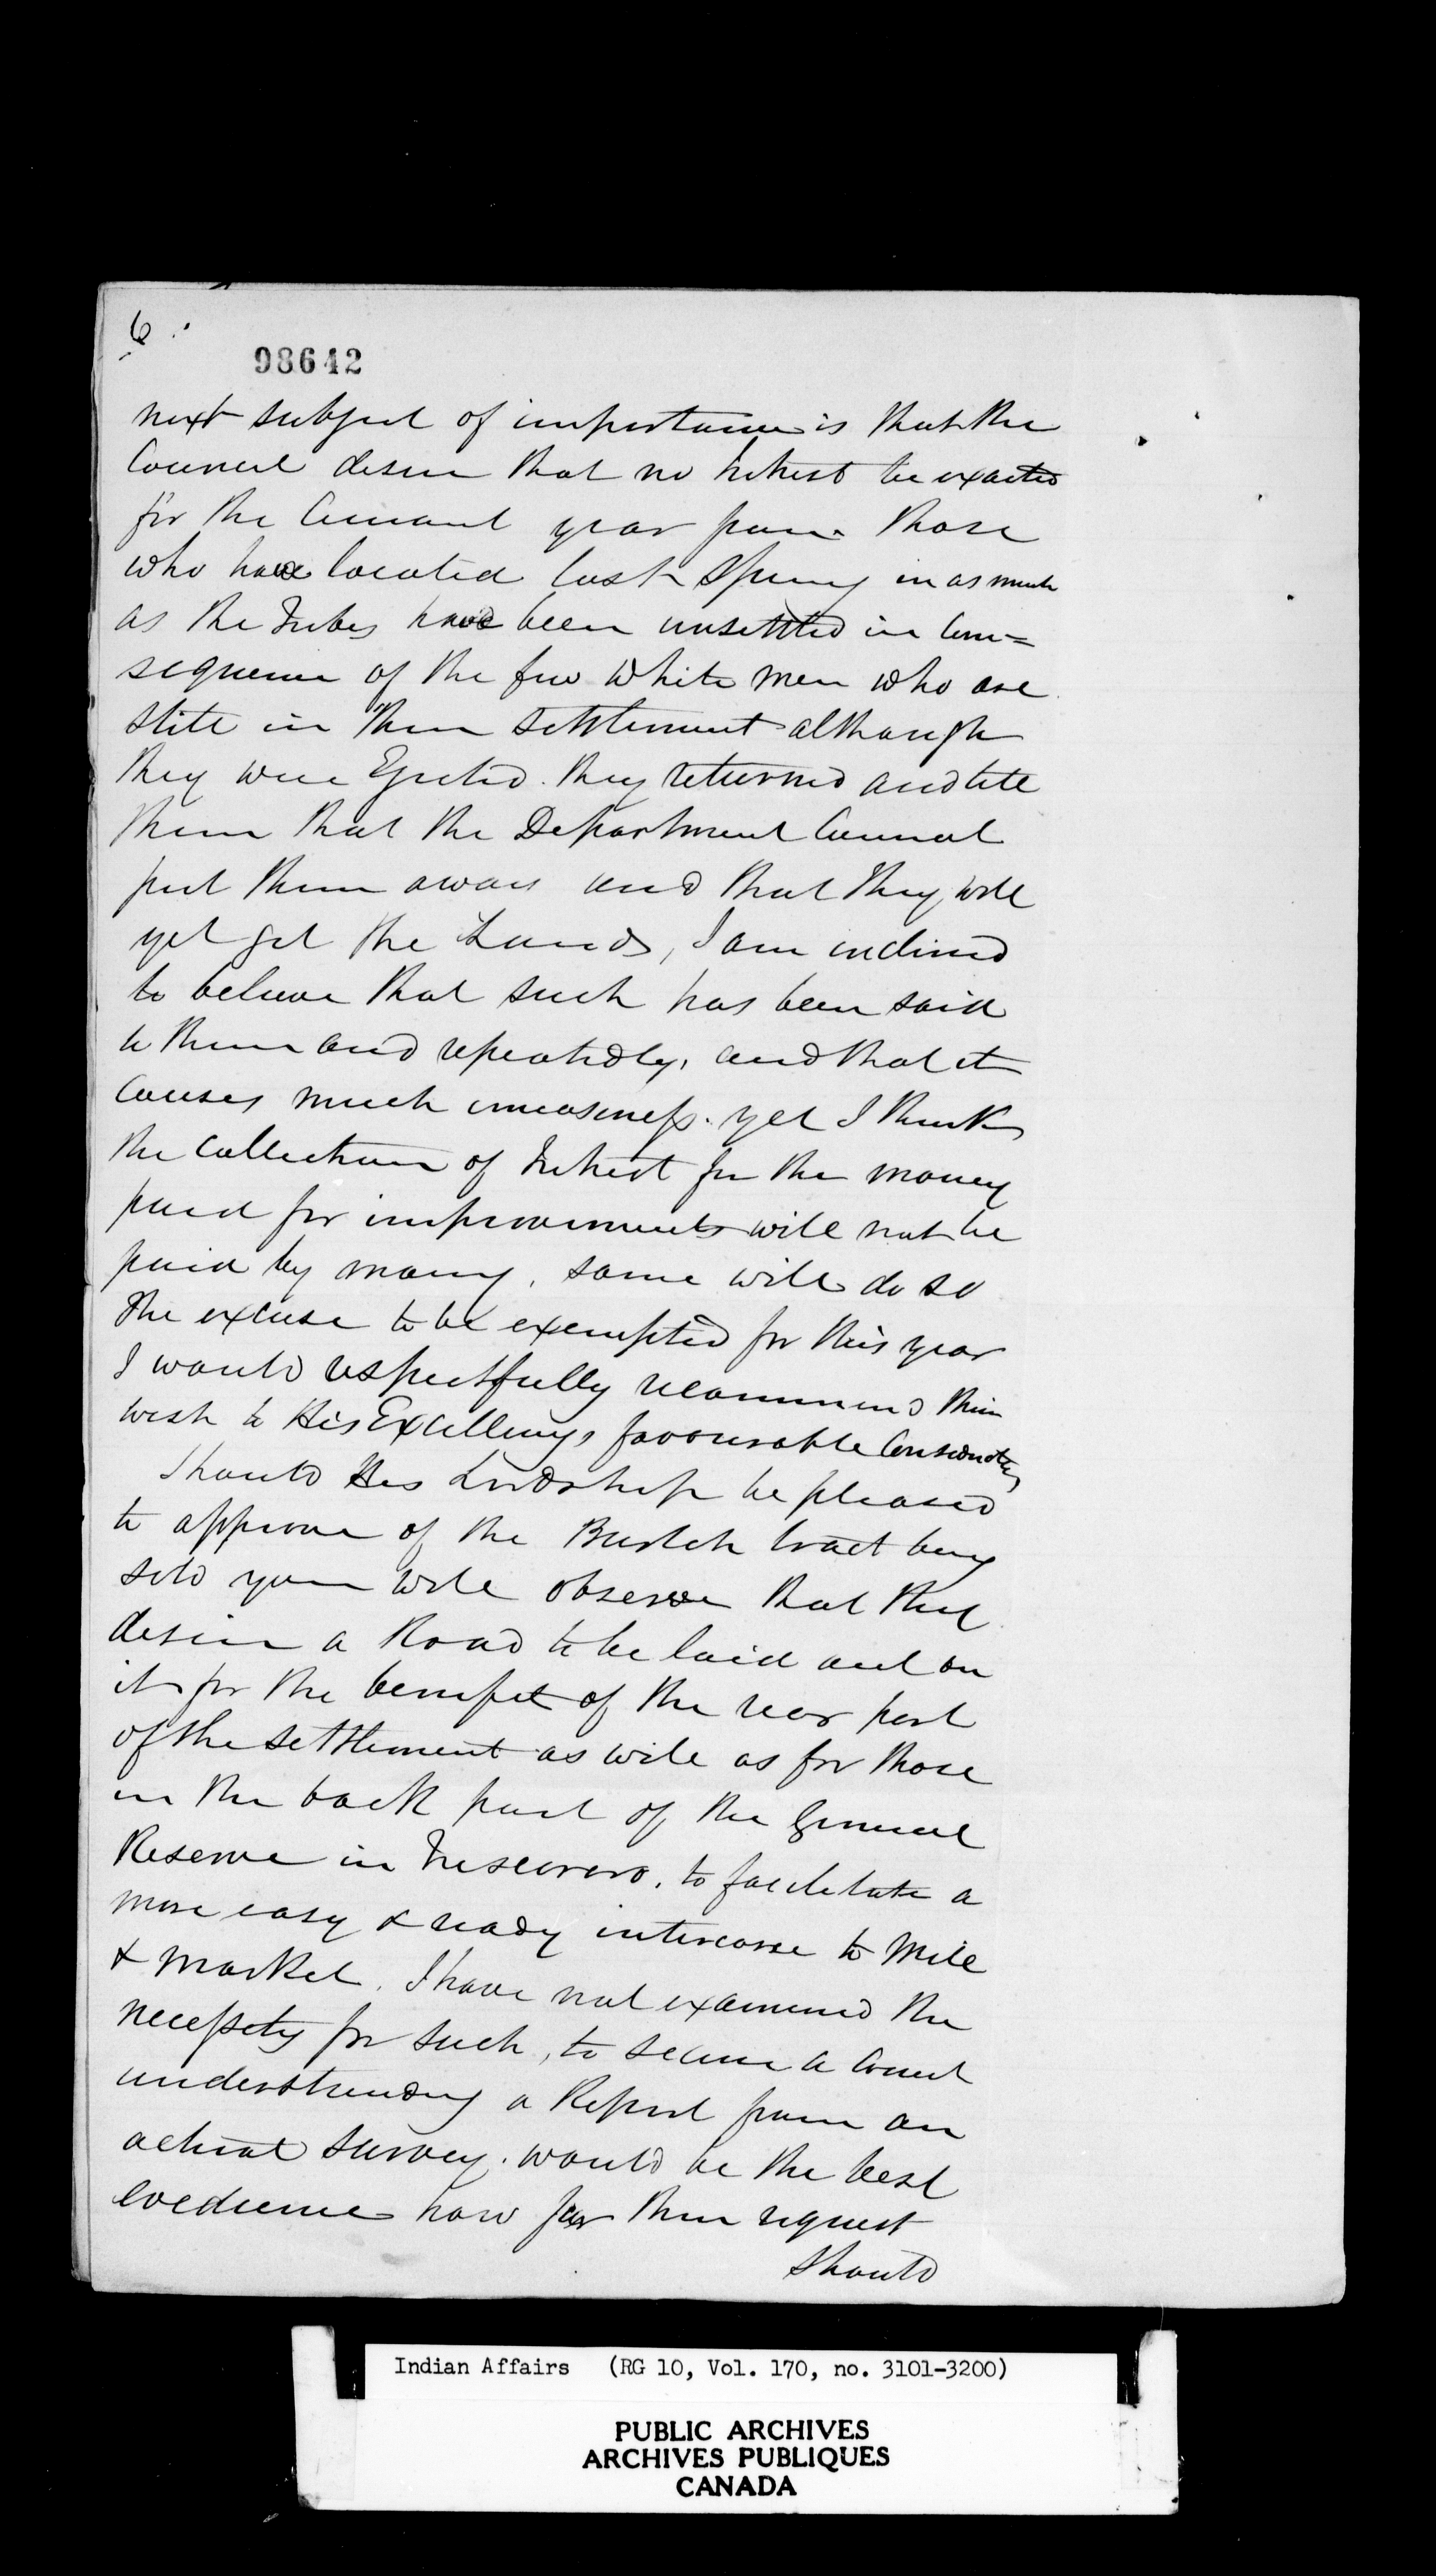 6
98642
next subject of importance is that the
Council desire that no Interest be exacted
for the Current year from those
who have located last Spring in as much
as the Tribes have been unsettled in Con=
sequence of the few White Men who are
still in their settlement although
they were Ejected. they returned and tell
them that the Department Cannot
put them away and that they will
yet get the Lands, I am inclined
to believe that such has been said
to them and repeatedly, and that it
causes much uneasiness. yet I think
the Collection of Interest for the money
paid for improvements will not be
paid by many, some will do so
the excuse to be exempted for this year
I would respectfully recommend their
wish to His Excellency's favourable Consideration
Should His Lordship be pleased
to approve of the Burtch tract being
sold you will observe that they
desire a Road to be laid out on
it for the benefit of the rear part
of the settlement as well as for those
in the back part of the General
Reserve in Tuscarora, to facilitate a
more easy & ready intercourse to Mill
& Market. I have not examined the
necessity for such, to secure a correct
understanding a Report from an
actual survey. would be the best
evidence how far their request
should
Indian Affairs (RG 10, Vol. 170, no. 3101-3200)
PUBLIC ARCHIVES
ARCHIVES PUBLIQUES
CANADA